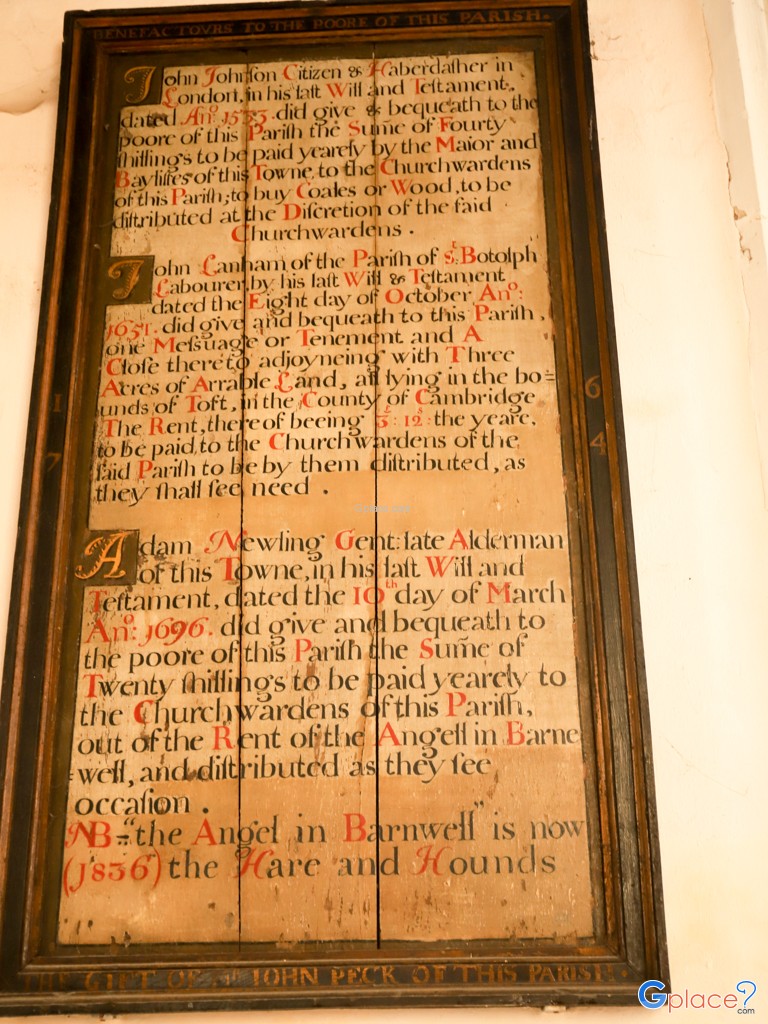 BENEFACTOVRS TO THE POORE OF THIS PARISH.
John Johnſon Citizen & Haberdaſher in
London, in his laſt Will and Teſtament,
dated Ano. 1533. did give & bequeath to the
poore of this Pariſh the Sum̃e of Fourty
ſhillings to be paid yearely by the Maior and
Bayliffes of this Towne, to the Churchwardens
of this Pariſh; to buy Coales or Wood, to be
diſtributed at the Diſcretion of the ſaid
Churchwardens.
John Lanham of the Pariſh of St. Botolph
Labourer, by his laſt Will & Teſtament
dated the Eight day of October Ano:
1651. did give and bequeath to this Pariſh,
one Meſsuage or Tenement and A
Cloſe thereto adjoyneing with Three
Acres of Arrable Land, all lying in the bo=
unds of Toft, in the County of Cambridge
The Rent, thereof beeing 12s: the yeare,
to be paid, to the Churchwardens of the
ſaid Pariſh to be by them diſtributed, as
they ſhall ſee need.
1 6
7 4
Adam Newling Gent: late Alderman
of this Towne, in his laſt Will and
Teſtament, dated the 10th day of March
Ano: 1696. did give and bequeath to
the poore of this Pariſh the Sum̃e of
Twenty ſhillings to be paid yearely to
the Churchwardens of this Pariſh,
out of the Rent of the Angell in Barne
=well, and diſtributed as they ſee
occaſion.
NB = "the Angel in Barnwell" is now
(1836) the Hare and Hounds
THE GIFT OF Mr JOHN PECK OF THIS PARISH.
Gplace?.com